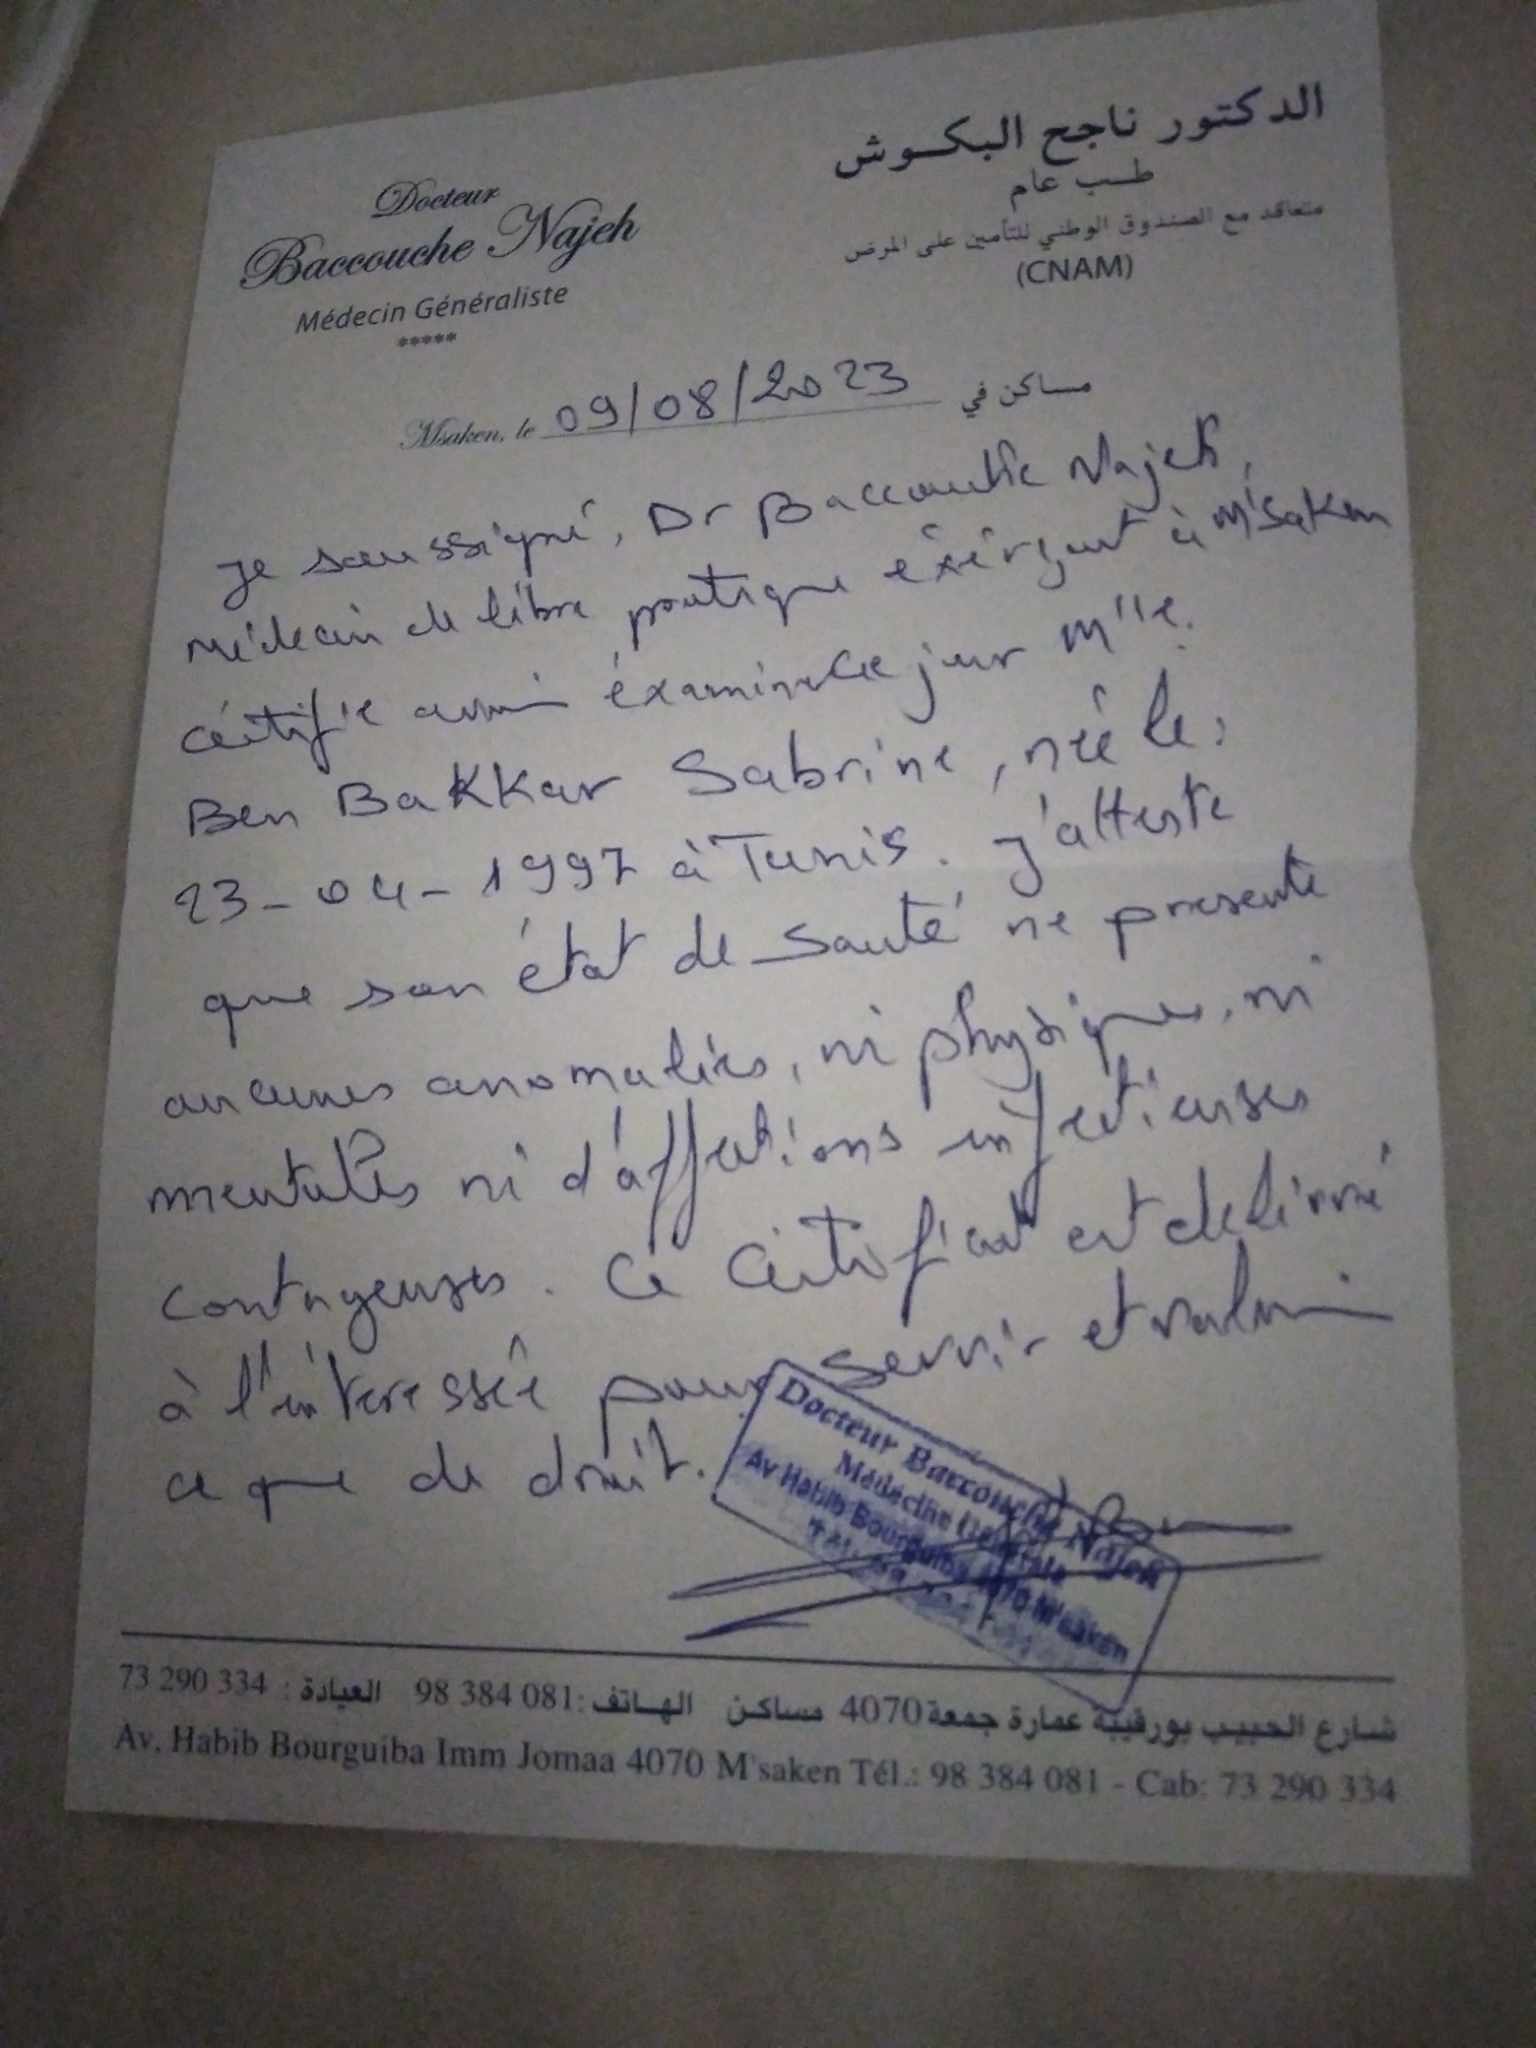 Docteur
Baccouche Najeh
Médecin Généraliste
*****
الدكتور ناجح البكوش
طب عام
متعاقد مع الصندوق الوطني للتأمين على المرض
(CNAM)
Msaken, le 09/08/2023 مساكن في
Je soussigné, Dr Baccouche Najeh,
médecin de libre pratique éxérçant à M'saken
cértifie avoir éxaminé ce jour Mlle.
Ben Bakkar Sabrine, née le :
23-04-1997 à Tunis. J'atteste
que son état de santé ne presente
aucunes anomalies, ni physiques, ni
mentales ni d'affections infectieuses
contagieuses. Ce cértificat est delivré
à l'intéressée pour servir et valoir
ce que de droit.
Docteur Baccouche Najeh
Médecine Générale
Av Habib Bourguiba 4070 M'saken
شارع الحبيب بورقيبة عمارة جمعة 4070 مساكن الهاتف: 98 384 081 العيادة : 73 290 334
Av. Habib Bourguiba Imm Jomaa 4070 M'saken Tél.: 98 384 081 - Cab: 73 290 334